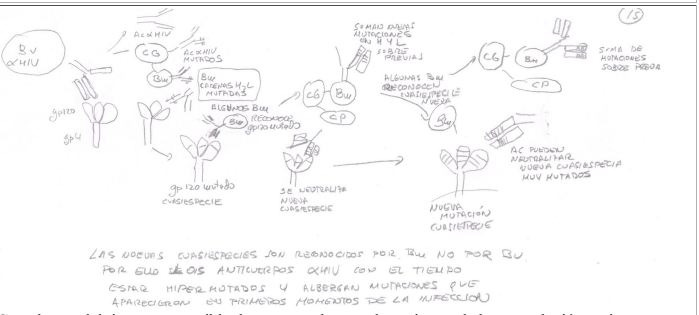 15
BV
αHIV
ACαHIV
CG
BM
ACαHIV
MUTADOS
BM
CADENAS H y L
MUTADAS
gp120
gp41
ALGUNOS BM
RECONOCE
gp120 MUTADO
gp120 mutado
CUASIESPECIE
SUMAN NUEVAS
MUTACIONES
EN H y L
SOBRE
PREVIAS
CG
BM
CP
SE NEUTRALIZA
NUEVA
CUASIESPECIE
ALGUNAS BM
RECONOCEN
CUASIESPECIE
NUEVA
BM
NUEVA
MUTACIÓN
CUASIESPECIE
CG
BM
CP
SUMA DE
MUTACIONES
SOBRE PREVIA
AC PUEDEN
NEUTRALIZAR
NUEVA CUASIESPECIE
MUY MUTADOS
LAS NUEVAS CUASIESPECIES SON RECONOCIDOS POR BM NO POR BV.
POR ELLO LOS ANTICUERPOS αHIV CON EL TIEMPO
ESTAR HIPERMUTADOS Y ALBERGAN MUTACIONES QUE
APARECIERON EN PRIMEROS MOMENTOS DE LA INFECCIÓN